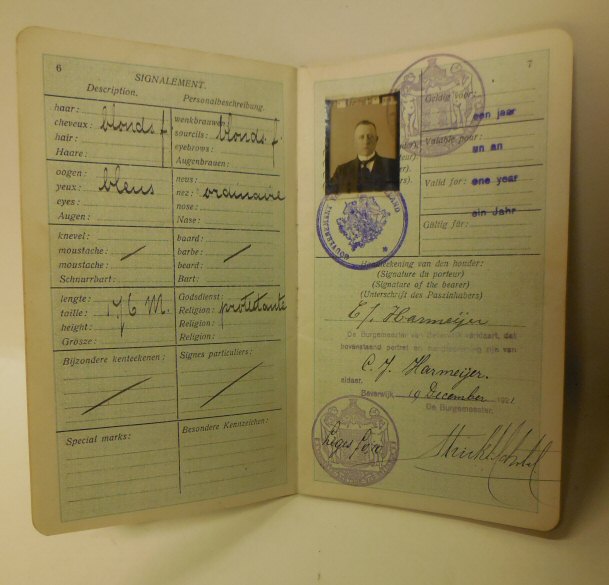 6
SIGNALEMENT.
Description. Personalbeschreibung.
haar:
cheveux: blonds
hair:
Haare:
wenkbrauwen:
sourcils: blonds
eyebrows:
Augenbrauen:
oogen:
yeux: bleus
eyes:
Augen:
neus:
nez: ordinaire
nose:
Nase:
knevel:
moustache:
moustache:
Schnurrbart:
baard:
barbe:
beard:
Bart:
lengte:
taille: 1,76 M.
height:
Grösze:
Godsdienst:
Religion: protestante
Religion:
Religion:
Bijzondere kenteekenen:
Signes particuliers:
Special marks:
Besondere Kennzeichen:
7
Geldig voor:
een jaar
Valable pour:
un an
Valid for: one year
ein Jahr
Gültig für:
Handteekening van den houder:
(Signature du porteur)
(Signature of the bearer)
(Unterschrift des Paszinhabers)
Harmeijer
De Burgemeester van Beverwijk verklaart, dat
bovenstaand portret en handteekening zijn van
C. J. Harmeijer.
aldaar.
Beverwijk, 19 December 192
De Burgemeester,